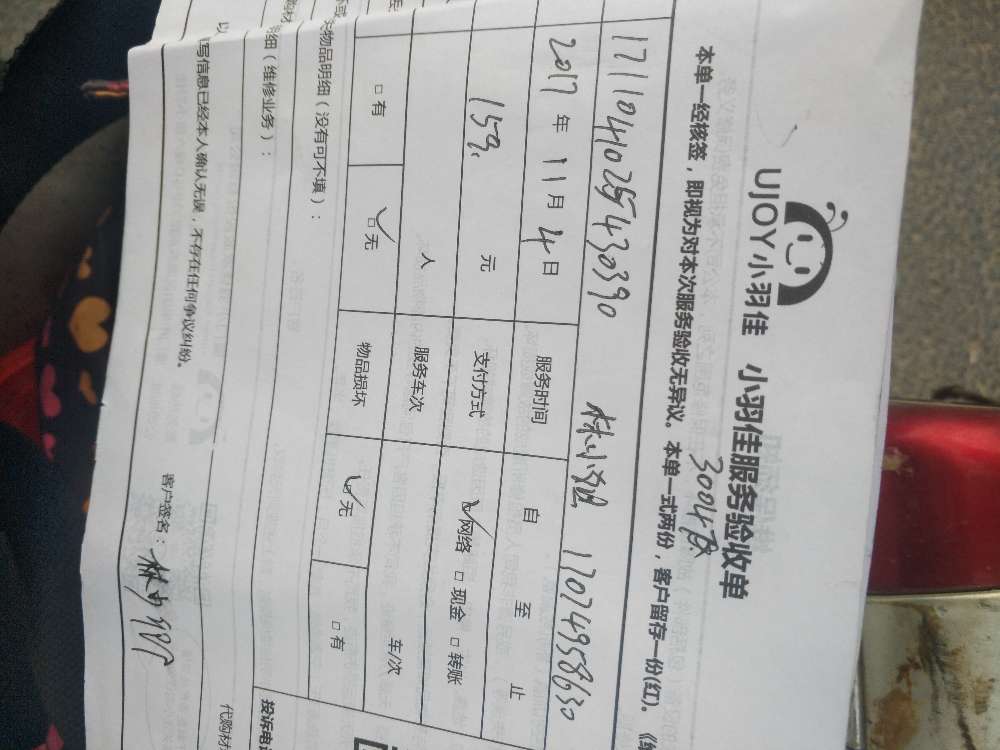 UJOY小羽佳 小羽佳服务验收单
3004
本单一经核签，即视为对本次服务验收无异议。本单一式两份，客户留存一份(红)。
17110402543039 林小姐 17024958630
2017年11月4日 服务时间 自 至 止
159. 元 支付方式 网络 现金 转账
人 服务车次 车/次
有 无 物品损坏 无 有
物品明细（没有可不填）：
细（维修业务）：
投诉电
代购材
写信息已经本人确认无误，不存在任何争议纠纷。
客户签名：